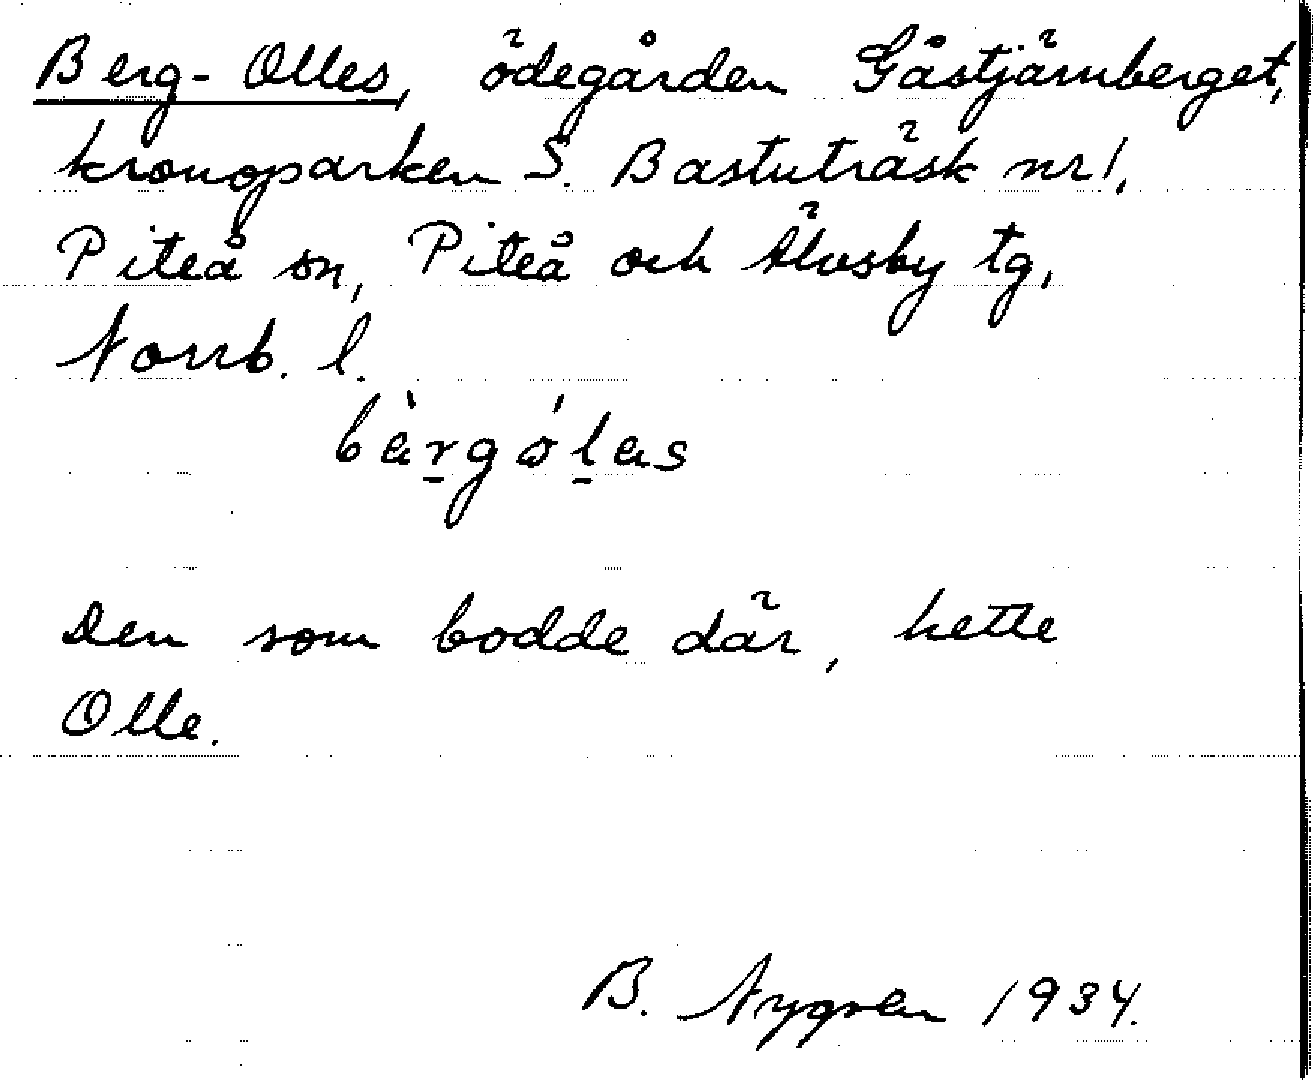 Berg-Olles, ödegården Gåstjärnberget,
kronoparken S. Bastuträsk nr 1,
Piteå sn, Piteå och Älvsby tg,
Norrb. l.
bèrgólas
Den som bodde där, hette
Olle.
B. Nygren 1934.